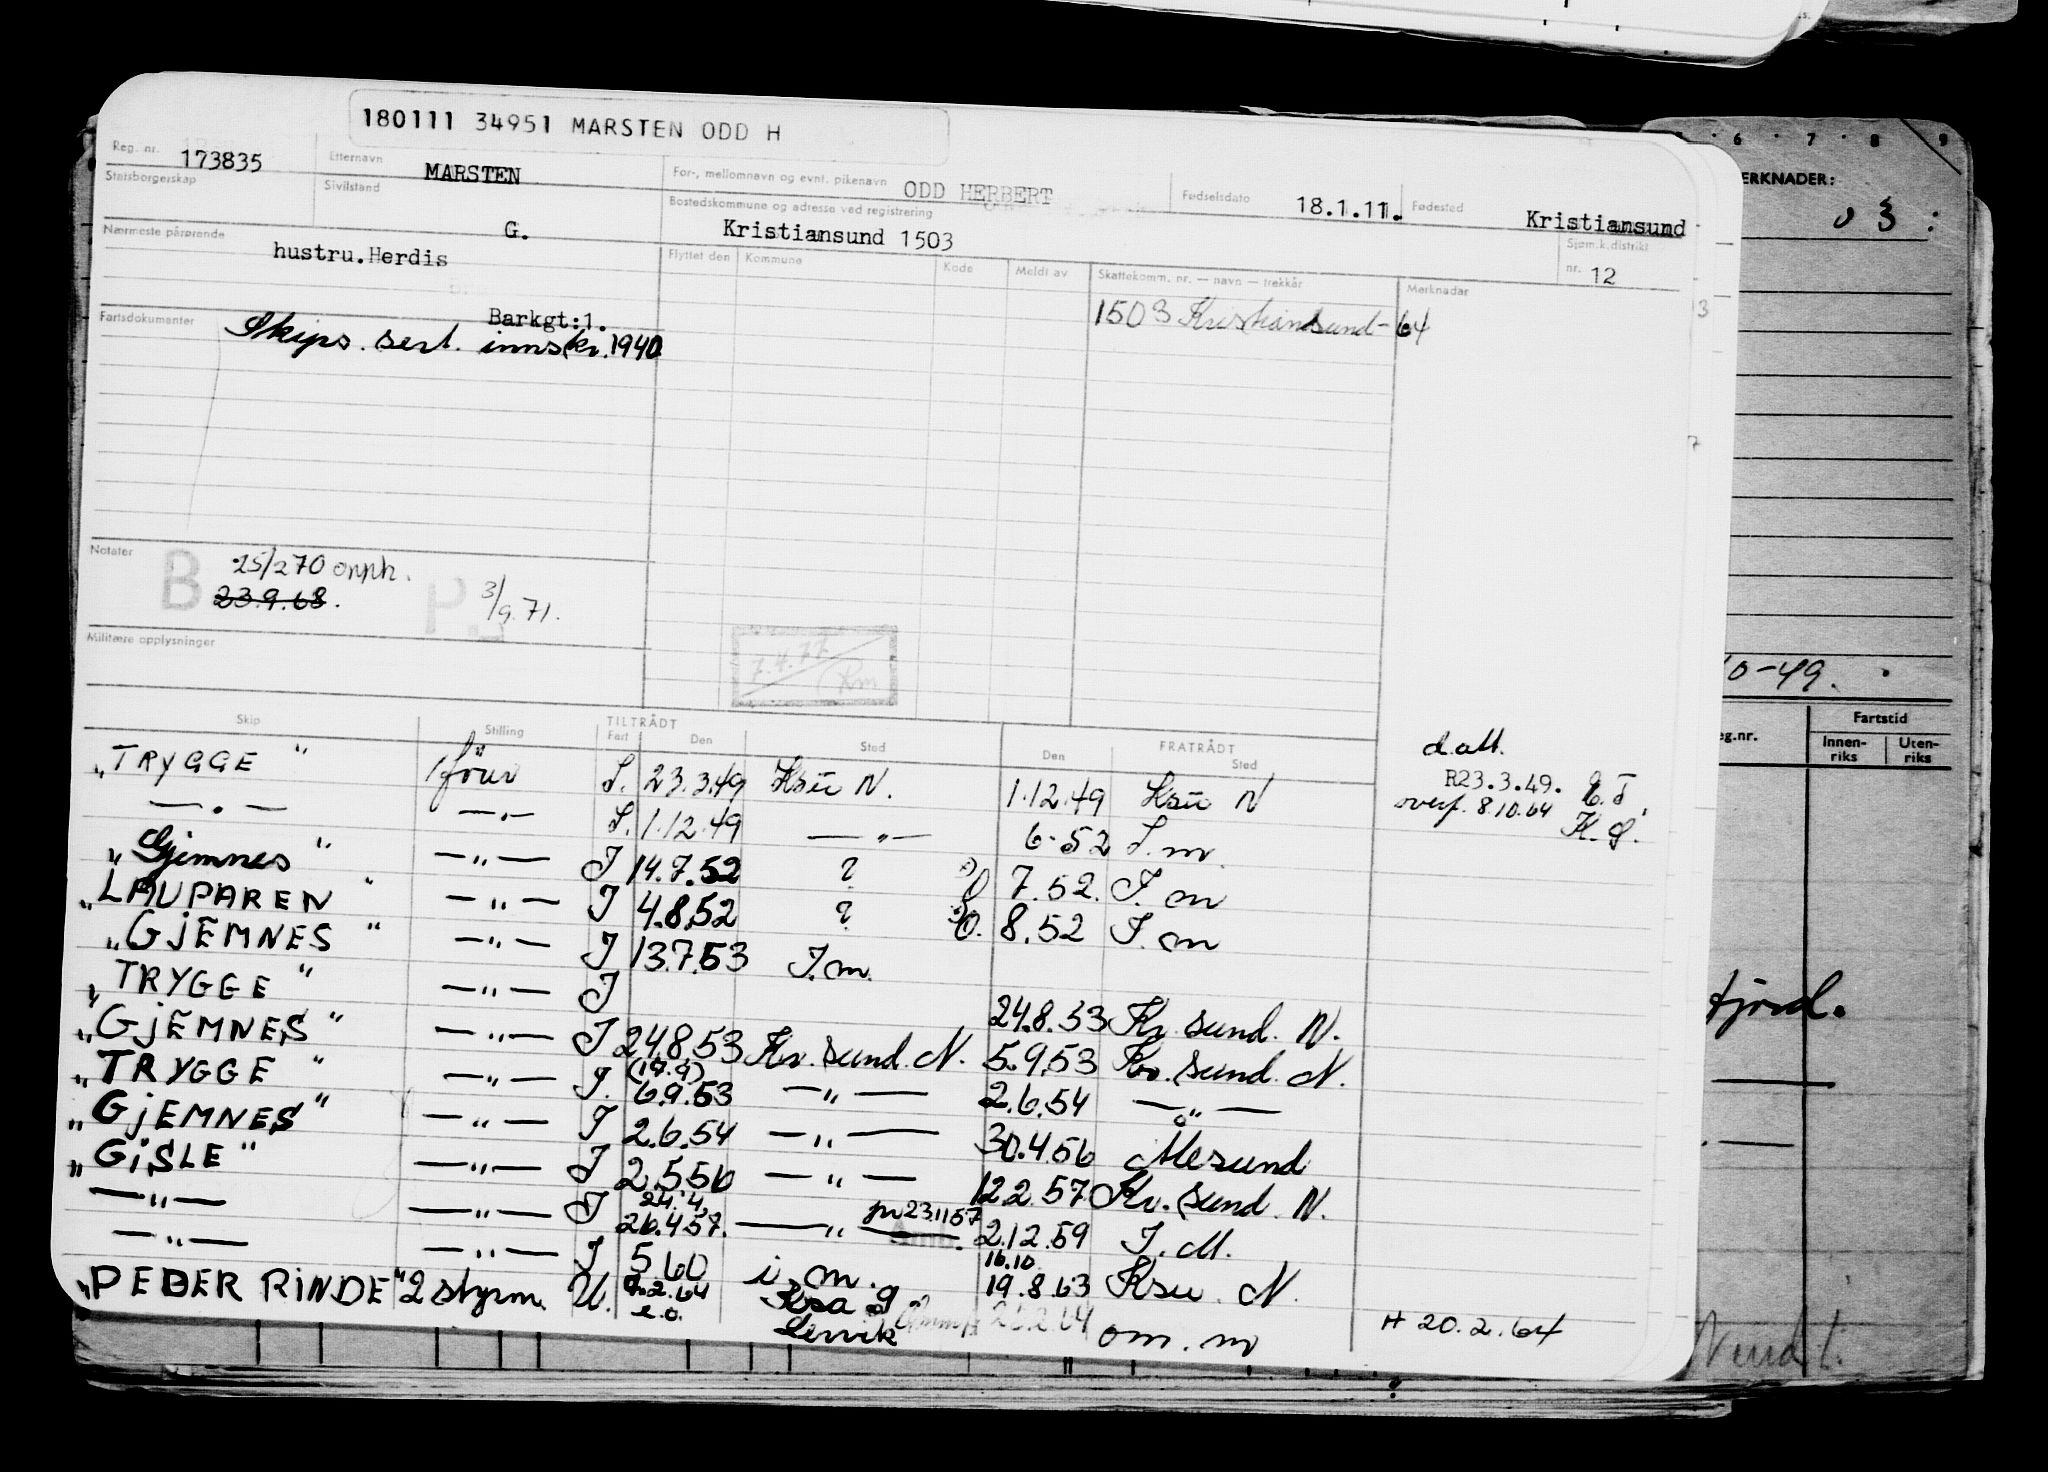 180111 34951 MARSTEN ODD H
Reg. nr. 173835 Etternavn MARSTEN For-, mellomnavn og evnt. pikenavn ODD HERBERT Fødselsdato 18.1.11. Fødested Kristiansund
Statsborgerskap Sivilstand G. Bostedskommune og adresse ved registrering Kristiansund 1503 Sjøm.k.distrikt nr. 12
Nærmeste pårørende hustru.Herdis Flyttet den Kommune Kode Meldt av Skattekomm. nr. — navn — trekkår Merknader
Barkgt:1. 1503 Kristiansund - 64
Fartsdokumenter Skips. sert. innskr. 1940
Notater B 25/270 opph. 3/9.71.
23.9.68.
Militære opplysninger
7.4.77 Rm
Skip Stilling TILTRÅDT Fart Den Sted FRATRÅDT Den Sted
d.all.
R23.3.49. E.T.
overf. 8.10.64 K.S.
"TRYGGE" 1förer S. 23.3.49 Ksu N. 1.12.49 Ksu N
— " — — " — S. 1.12.49 — " — 6-52 S.m.
"Gjemnes" — " — I 14.7.52 ? 7.52. I.m
"LAUPAREN" — " — I 4.8.52 ? 8.52 I.m
"GJEMNES" — " — I 13.7.53 I.m.
"TRYGGE" — " — I 24.8.53 Kr.sund. N.
"GJEMNES" — " — I 24.8.53 Kr.sund. N. 5.9.53 Kr.sund. N.
"TRYGGE" — " — I. 6.9.53 — " — 2.6.54 — " —
"GJEMNES" — " — I 2.6.54 — " — 30.4.56 Ålesund
"GISLE" — " — I 2.5.56 — " — 12.2.57 Kr.sund. N.
— " — — " — I 24.4. 26.4.57. — " — 23.11.57 2.12.59 I.M.
— " — — " — I 5.60 i.m. 16.10 19.8.63 Ksu. N.
"PEDER RINDE" 2 styrm. U. 9.2.64 Lervik 26.2.64 om.m H 20.2.64
6 7 8 9
ERKNADER:
03:
10-49.
eg.nr. Fartstid
Innen-riks Uten-riks
fjord.